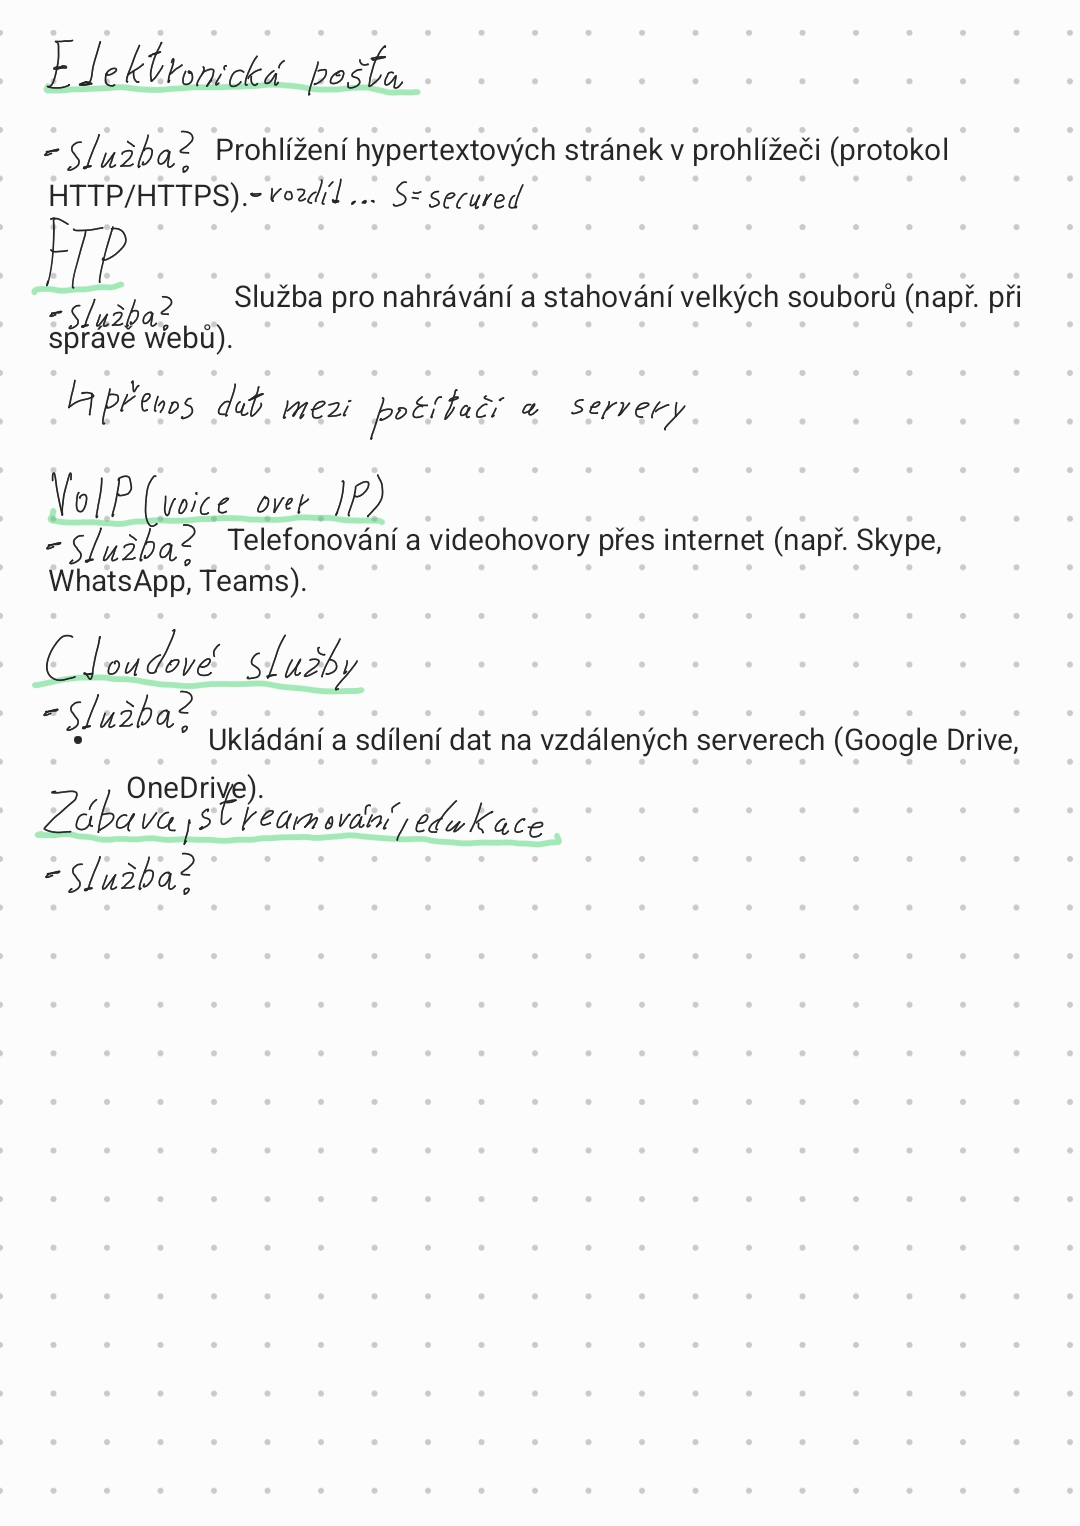 Elektronická pošta
- Služba? Prohlížení hypertextových stránek v prohlížeči (protokol
HTTP/HTTPS).- rozdíl... S=secured
FTP
- Služba? Služba pro nahrávání a stahování velkých souborů (např. při
správě webů).
↳ přenos dat mezi počítači a servery
VoIP (voice over IP)
- Služba? Telefonování a videohovory přes internet (např. Skype,
WhatsApp, Teams).
Cloudové služby
- Služba?
• Ukládání a sdílení dat na vzdálených serverech (Google Drive,
OneDrive).
Zábava, streamování, edukace
- Služba?